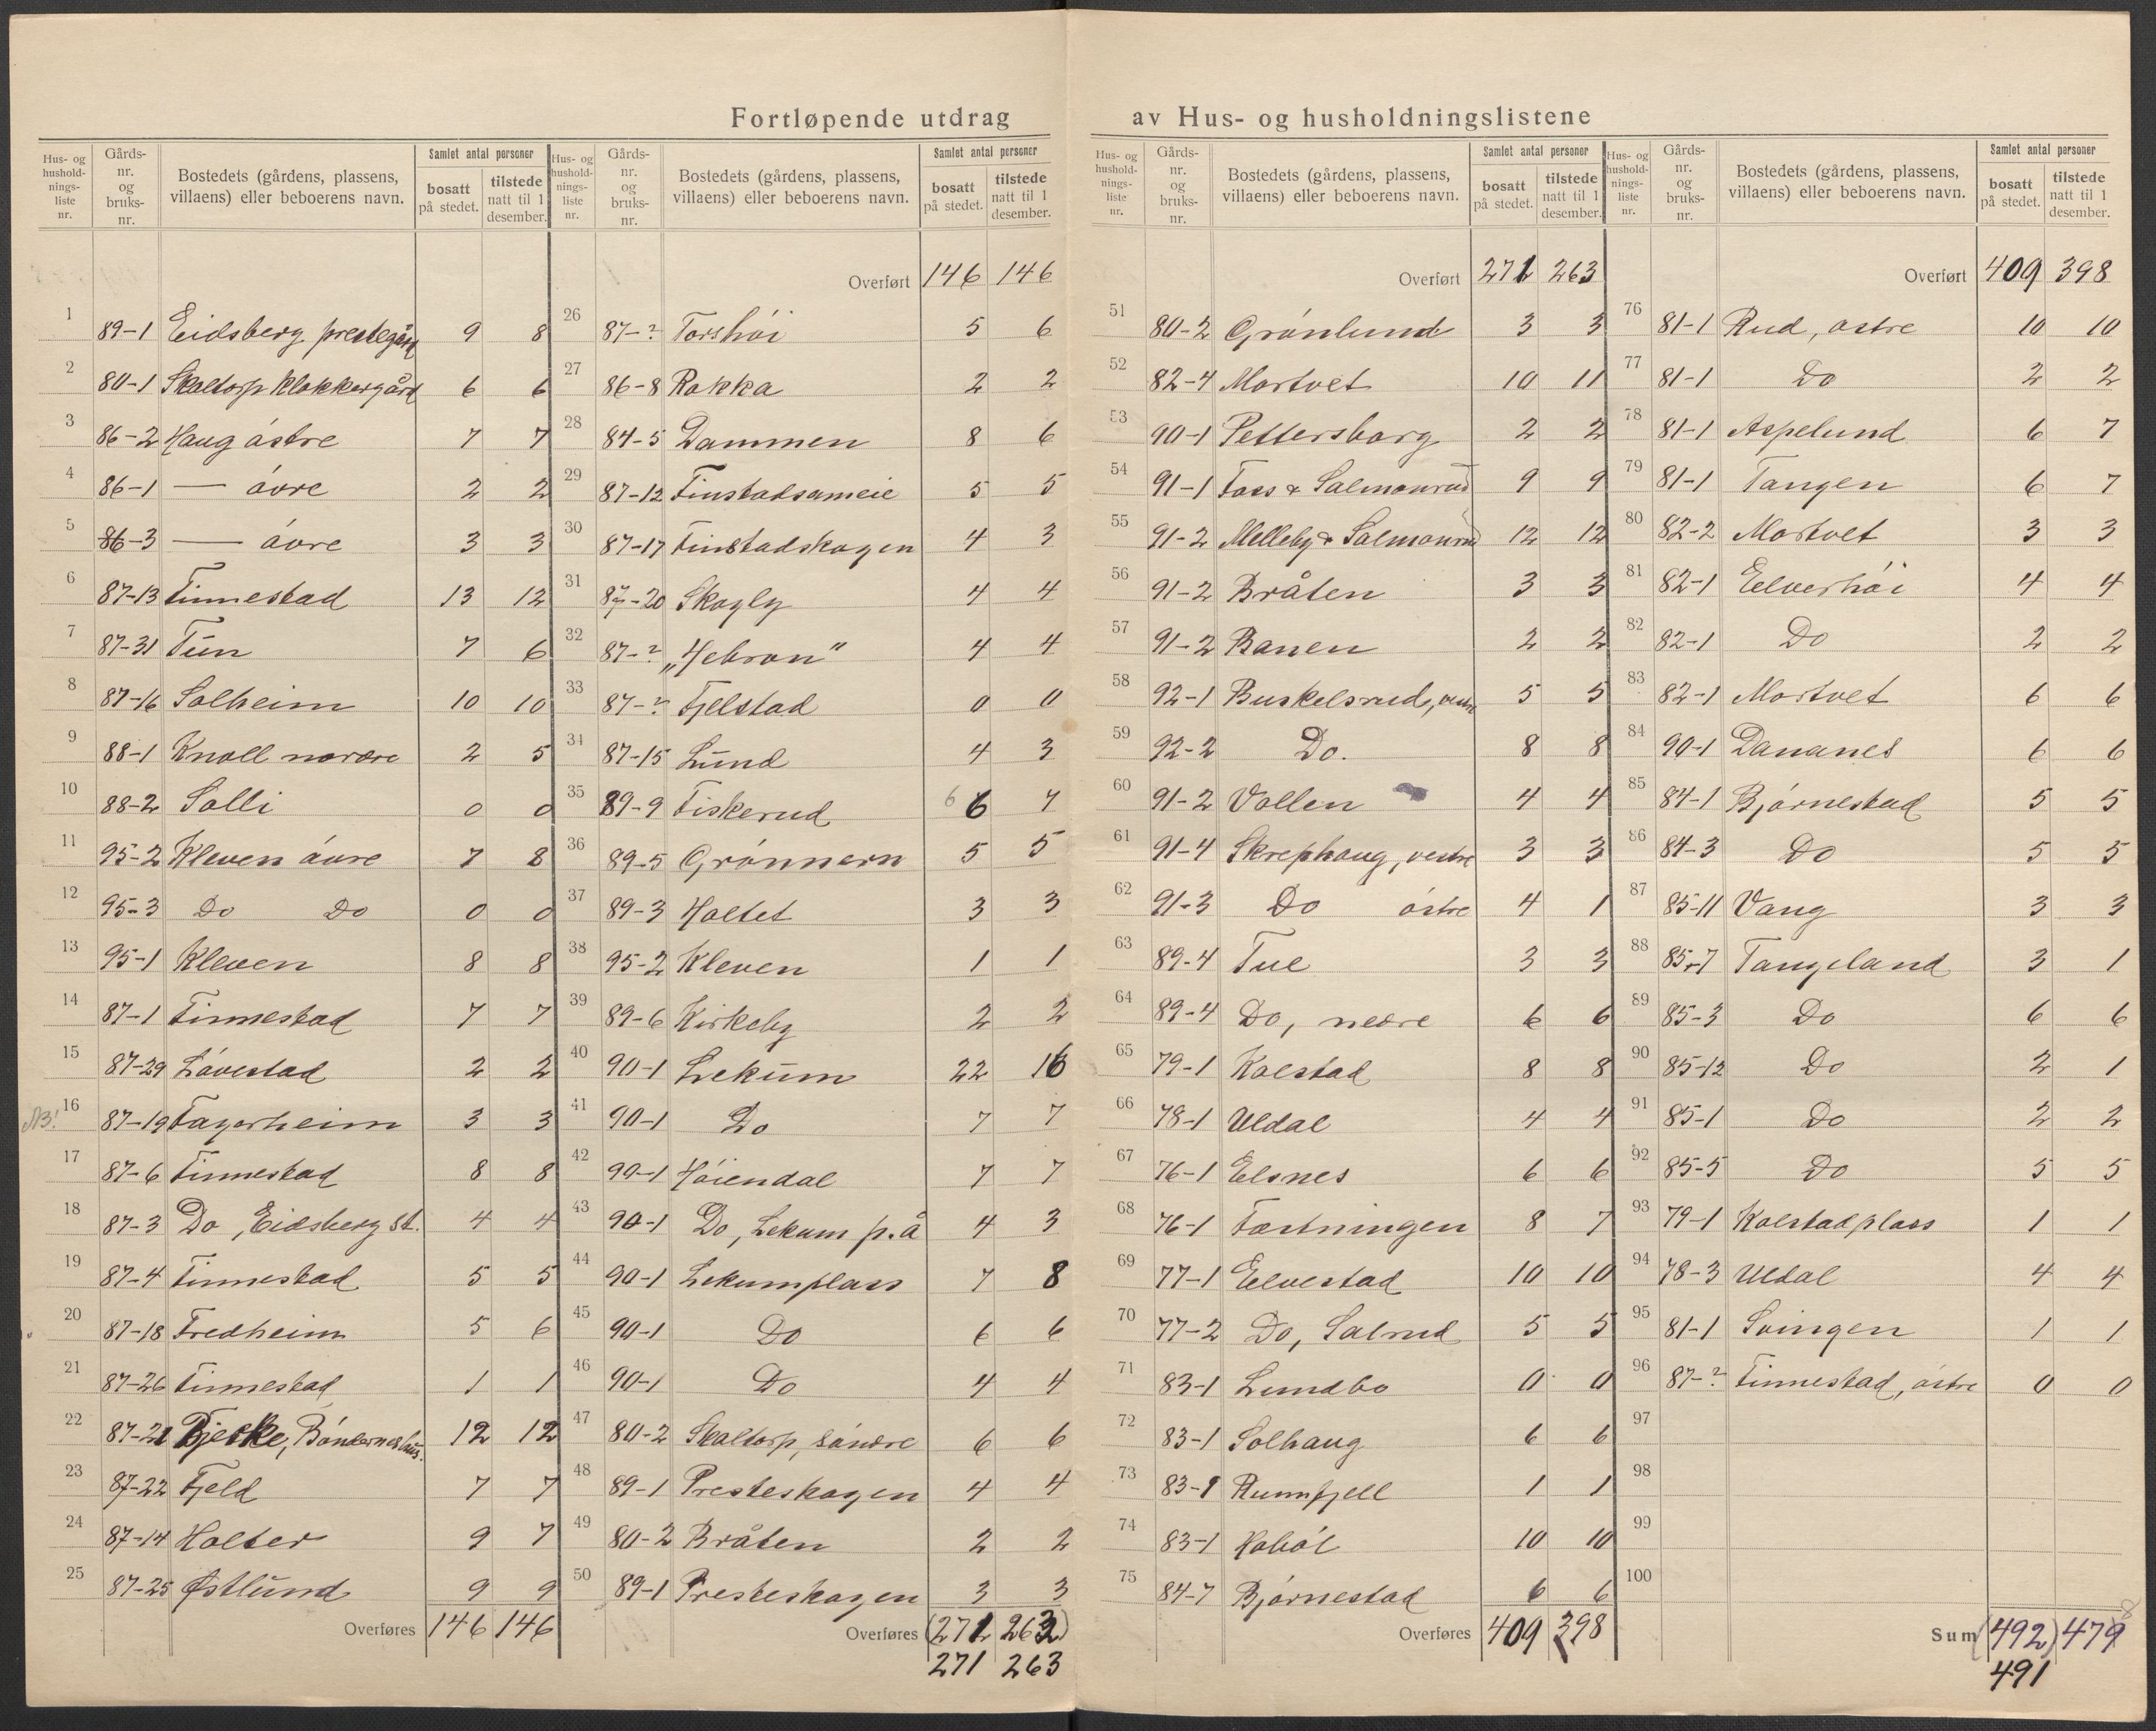 Fortløpende utdrag av Hus- og husholdningslistene
Hus- og husholdnings- liste nr. | Gårds- nr. og bruks- nr. | Bostedets (gårdens, plassens, villaens) eller beboerens navn. | Samlet antal personer bosatt på stedet. | tilstede natt til 1 desember.
1 89-1 Eidsberg prestegård 9 8
2 80-1 Skaltorp Klokkergård 6 6
3 86-2 Haug østre 7 7
4 86-1 — øvre 2 2
5 86-3 — øvre 3 3
6 87-13 Finnestad 13 12
7 87-31 Tun 7 6
8 87-16 Solheim 10 10
9 88-1 Knoll nordre 2 5
10 88-2 Solli 0 0
11 95-2 Kleven øvre 7 8
12 95-3 Do Do 0 0
13 95-1 Kleven 8 8
14 87-1 Finnestad 7 7
15 87-29 Løvestad 2 2
NB! 16 87-19 Fagerheim 3 3
17 87-6 Finnestad 8 8
18 87-3 Do, Eidsberg st. 4 4
19 87-4 Finnestad 5 5
20 87-18 Fredheim 5 6
21 87-26 Finnestad 1 1
22 87-21 Bøndernes hus. 12 12
23 87-22 Fjeld 7 7
24 87-14 Holter 9 7
25 87-25 Østlund 9 9
Overføres 146 146
Hus- og husholdnings- liste nr. | Gårds- nr. og bruks- nr. | Bostedets (gårdens, plassens, villaens) eller beboerens navn. | Samlet antal personer bosatt på stedet. | tilstede natt til 1 desember.
Overført 146 146
26 87-? Torshøi 5 6
27 86-8 Rokka 2 2
28 84-5 Dammen 8 6
29 87-12 Finstadsameie 5 5
30 87-17 Finstadskogen 4 3
31 87-20 Skogly 4 4
32 87-? „Hebron" 4 4
33 87-? Fjelstad 0 0
34 87-15 Lund 4 3
35 89-9 Fiskerud 6 6 7
36 89-5 Grønnern 5 5
37 89-3 Holtet 3 3
38 95-2 Kleven 1 1
39 89-6 Kirkeby 2 2
40 90-1 Lekum 22 16
41 90-1 Do 7 7
42 90-1 Høiendal 7 7
43 90-1 Do, Lekum p.å 4 3
44 90-1 Lekumplass 7 8
45 90-1 Do 6 6
46 90-1 Do 4 4
47 80-2 Skaltorp, søndre 6 6
48 89-1 Presteskogen 4 4
49 80-2 Bråten 2 2
50 89-1 Presteskogen 3 3
Overføres (271 263)
271 263
Hus- og husholdnings- liste nr. | Gårds- nr. og bruks- nr. | Bostedets (gårdens, plassens, villaens) eller beboerens navn. | Samlet antal personer bosatt på stedet. | tilstede natt til 1 desember.
Overført 271 263
51 80-2 Grønlund 3 3
52 82-4 Mortvet 10 11
53 90-1 Pettersborg 2 2
54 91-1 Foss & Salmonrud 9 9
55 91-2 Melleby & Salmonrud 12 12
56 91-2 Bråten 3 3
57 91-2 Banen 2 2
58 92-1 Buskelsrud, vestre 5 5
59 92-2 Do. 8 8
60 91-2 Vollen 4 4
61 91-4 Skrephaug, vestre 3 3
62 91-3 Do østre 4 1
63 89-4 Tue 3 3
64 89-4 Do, nedre 6 6
65 79-1 Kolstad 8 8
66 78-1 Uldal 4 4
67 76-1 Elsnes 6 6
68 76-1 Fæstningen 8 7
69 77-1 Eelvestad 10 10
70 77-2 Do, Salrud 5 5
71 83-1 Lundbo 0 0
72 83-1 Solhaug 6 6
73 83-1 1 1
74 83-1 Hobøl 10 10
75 84-7 Bjørnestad 6 6
Overføres 409 398
Hus- og husholdnings- liste nr. | Gårds- nr. og bruks- nr. | Bostedets (gårdens, plassens, villaens) eller beboerens navn. | Samlet antal personer bosatt på stedet. | tilstede natt til 1 desember.
Overført 409 398
76 81-1 Rud, østre 10 10
77 81-1 Do 2 2
78 81-1 Aspelund 6 7
79 81-1 Tangen 6 7
80 82-2 Mortvet 3 3
81 82-1 Eelverhøi 4 4
82 82-1 Do 2 2
83 82-1 Mortvet 6 6
84 90-1 Dananes 6 6
85 84-1 Bjørnestad 5 5
86 84-3 Do 5 5
87 85-11 Vang 3 3
88 85-7 Tangeland 3 1
89 85-3 Do 6 6
90 85-12 Do 2 1
91 85-1 Do 2 2
92 85-5 Do 5 5
93 79-1 Kolstadplass 1 1
94 78-3 Uldal 4 4
95 81-1 Svingen 1 1
96 87-? Finnestad, østre 0 0
97
98
99
100
Sum (492) 479 8
491